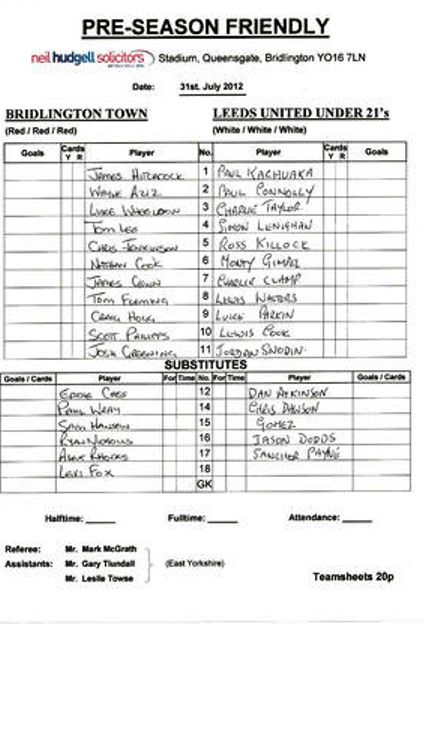 PRE-SEASON FRIENDLY
neil hudgell solicitors Stadium, Queensgate, Bridlington YO16 7LN
Date: 31st. July 2012
BRIDLINGTON TOWN LEEDS UNITED UNDER 21's
(Red / Red / Red) (White / White / White)
Goals Cards Y R Player No. Player Cards Y R Goals
JAMES HITCHCOCK 1 PAUL KACHUAKA
WAYNE AZIZ 2 PAUL CONNOLLY
LUKE 3 CHARLIE TAYLOR
TOM LEE 4 SIMON LENIGHAN
CHRIS JENKINSON 5 ROSS KILLOCK
NATHAN COOK 6 MONTY GIMPEL
JAMES COWN 7 CHARLIE CLAMP
TOM FLEMING 8 LEWIS WALTERS
CRAIG HOGG 9 LUKE PARKIN
SCOTT PHILLIPS 10 LEWIS COOK
JOSH GREENING 11 JORDAN SNODIN
SUBSTITUTES
Goals / Cards Player For Time No. For Time Player Goals / Cards
EDDIE CASS 12 DAN ATKINSON
PAUL WRAY 14 CHRIS DAWSON
SAM HANSEN 15 GOMEZ
RYAN NICHOLLS 16 JASON DODDS
ALEX RHODES 17 SANCHEZ PAYNE
LEVI FOX 18
GK
Halftime: Fulltime: Attendance:
Referee: Mr. Mark McGrath
Assistants: Mr. Gary Tiundall (East Yorkshire)
Mr. Leslie Towse
Teamsheets 20p